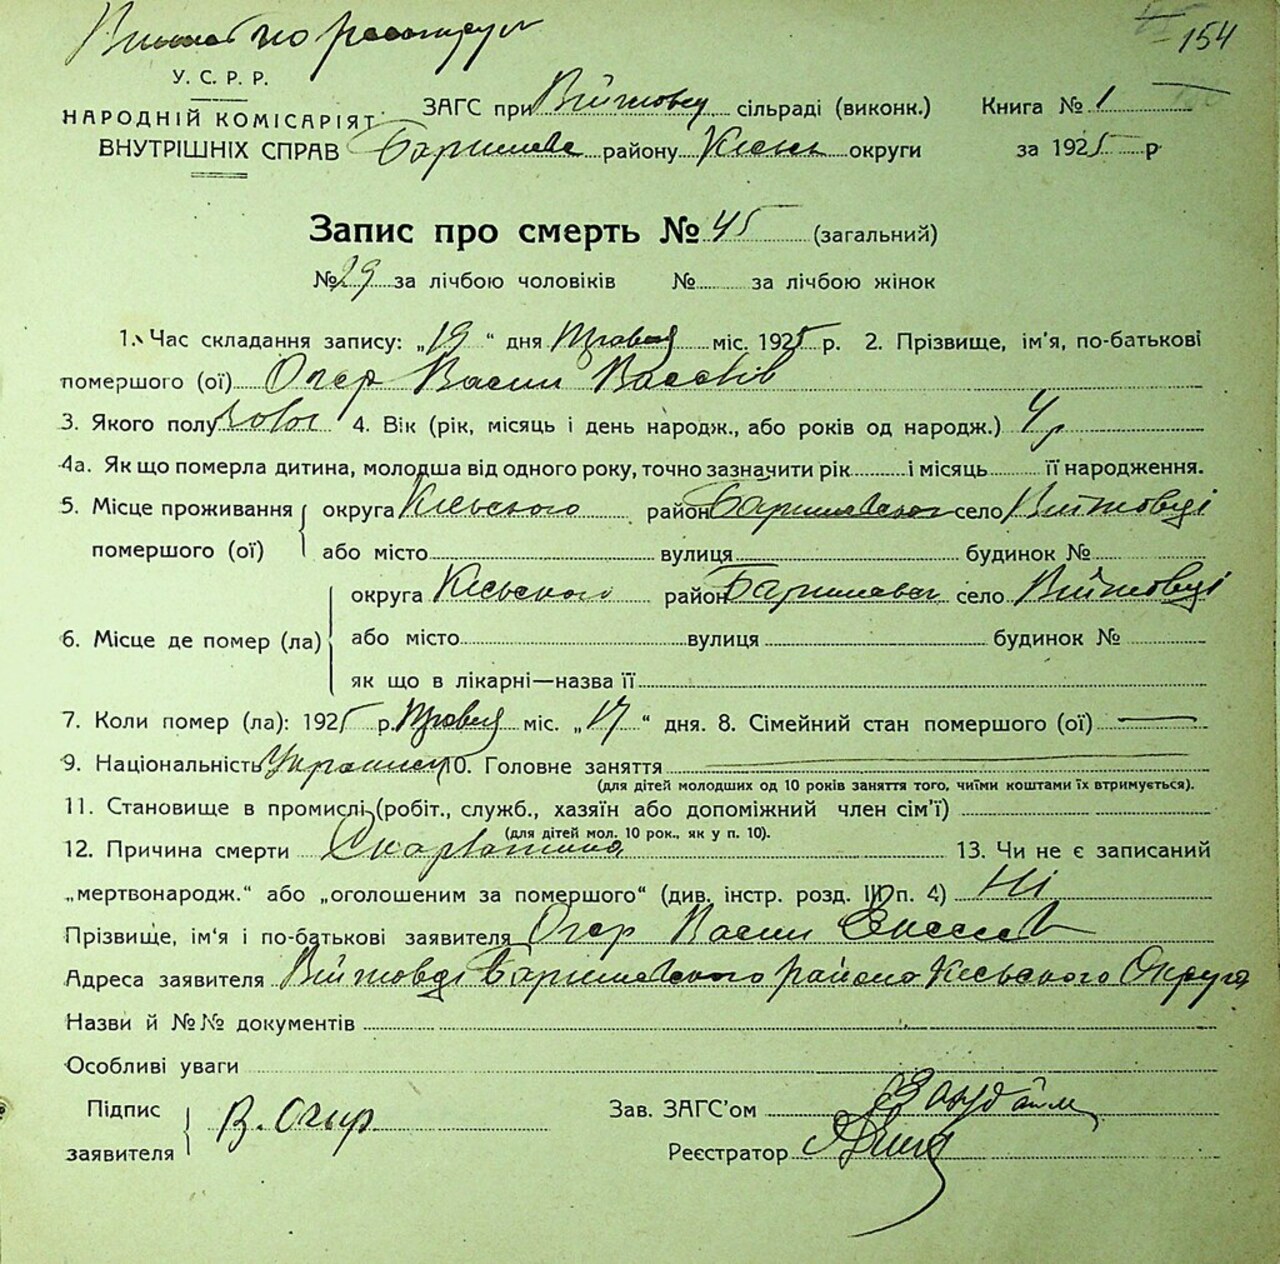 154
У. С. Р. Р.
НАРОДНІЙ КОМІСАРІЯТ
ВНУТРІШНІХ СПРАВ
ЗАГС при Війтовец сільраді (виконк.)
Баришевс району Киевс округи
Книга № 1
за 1925 р
Запис про смерть № 45 (загальний)
№ 29 за лічбою чоловіків № за лічбою жінок
1. Час складання запису: „19“ дня Травня міс. 1925 р. 2. Прізвище, ім'я, по-батькові
помершого (ої) Огер Васил Василів
3. Якого полу 4. Вік (рік, місяць і день народж., або років од народж.) 4 р
4а. Як що померла дитина, молодша від одного року, точно зазначити рік і місяць її народження.
5. Місце проживання помершого (ої)
округа Київського район Баришевського село Війтовці
або місто вулиця будинок №
6. Місце де помер (ла)
округа Київського район Баришевсвог село Війтовці
або місто вулиця будинок №
як що в лікарні—назва її
7. Коли помер (ла): 1925 р. Травня міс. „17“ дня. 8. Сімейний стан помершого (ої) —
9. Національність Украинец 10. Головне заняття —
(для дітей молодших од 10 років заняття того, чиїми коштами їх втримується).
11. Становище в промислі (робіт., служб., хазяїн або допоміжний член сім'ї)
(для дітей мол. 10 рок., як у п. 10).
12. Причина смерти Скарлатина 13. Чи не є записаний
„мертвонародж.“ або „оголошеним за помершого“ (див. інстр. розд. III п. 4) Ні
Прізвище, ім'я і по-батькові заявителя Огер Васил
Адреса заявителя Війтовці Баришевского району Київського Округа
Назви й №№ документів
Особливі уваги
Підпис заявителя В. Огыр
Зав. ЗАГС'ом
Реєстратор